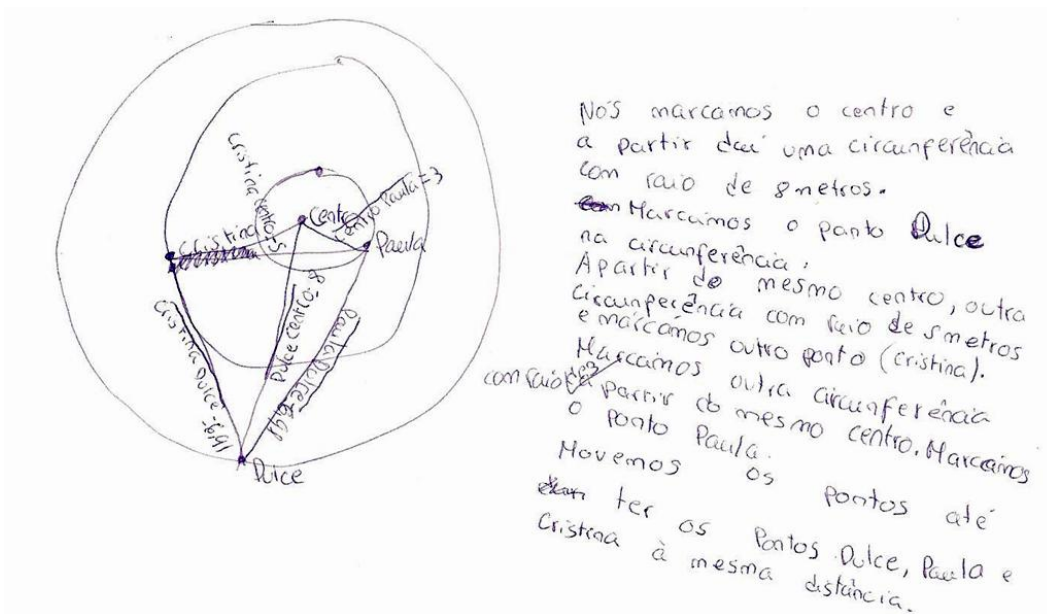 Cristina centro=5
Centro
Centro Paula=3
Cristina
Paula
Dulce centro=8
Cristina Dulce=6,91
Paula Dulce=6,91
Dulce
Nós marcamos o centro e
a partir daí uma circunferência
com raio de 8 metros.
Marcámos o ponto Dulce
na circunferência.
Apartir do mesmo centro, outra
circunferência com raio de 5 metros
e marcámos outro ponto (cristina).
Marcamos outra circunferência
com raio de 3 a partir do mesmo centro. Marcámos
o ponto Paula.
Movemos os pontos até
ter os Pontos Dulce, Paula e
Cristina à mesma distância.